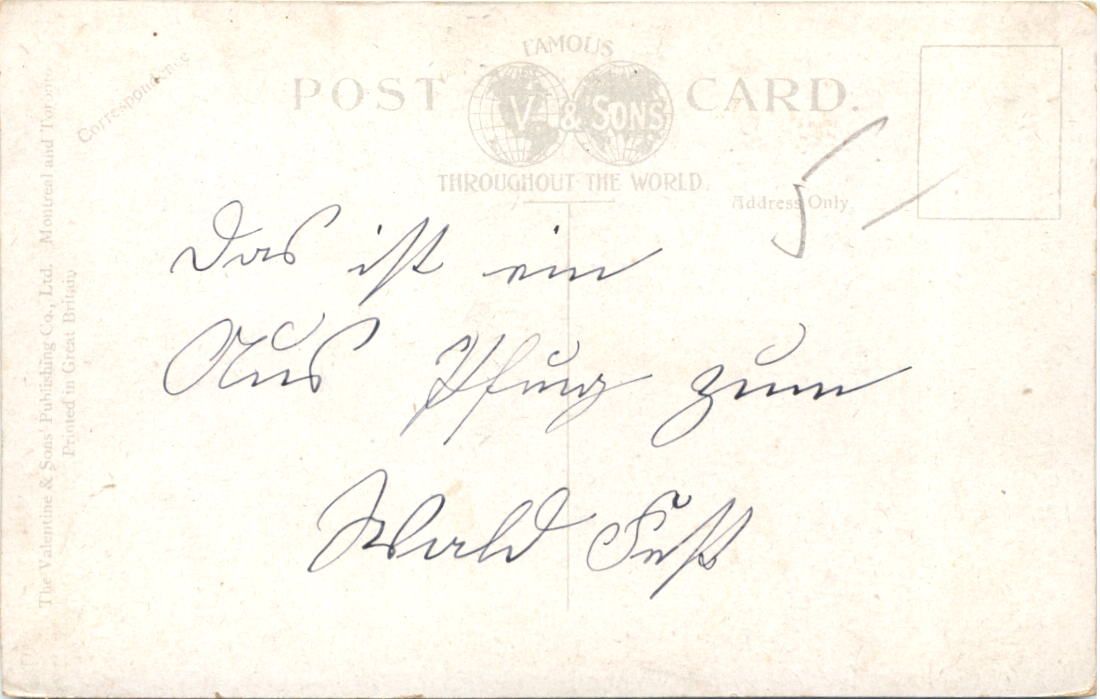 Correspondence
FAMOUS
POST CARD.
V & SONS
THROUGHOUT THE WORLD.
Address Only.
5
Das ist ein
Aus zum
Wald Fest
The Valentine & Sons' Publishing Co., Ltd. Montreal and Toronto
Printed in Great Britain